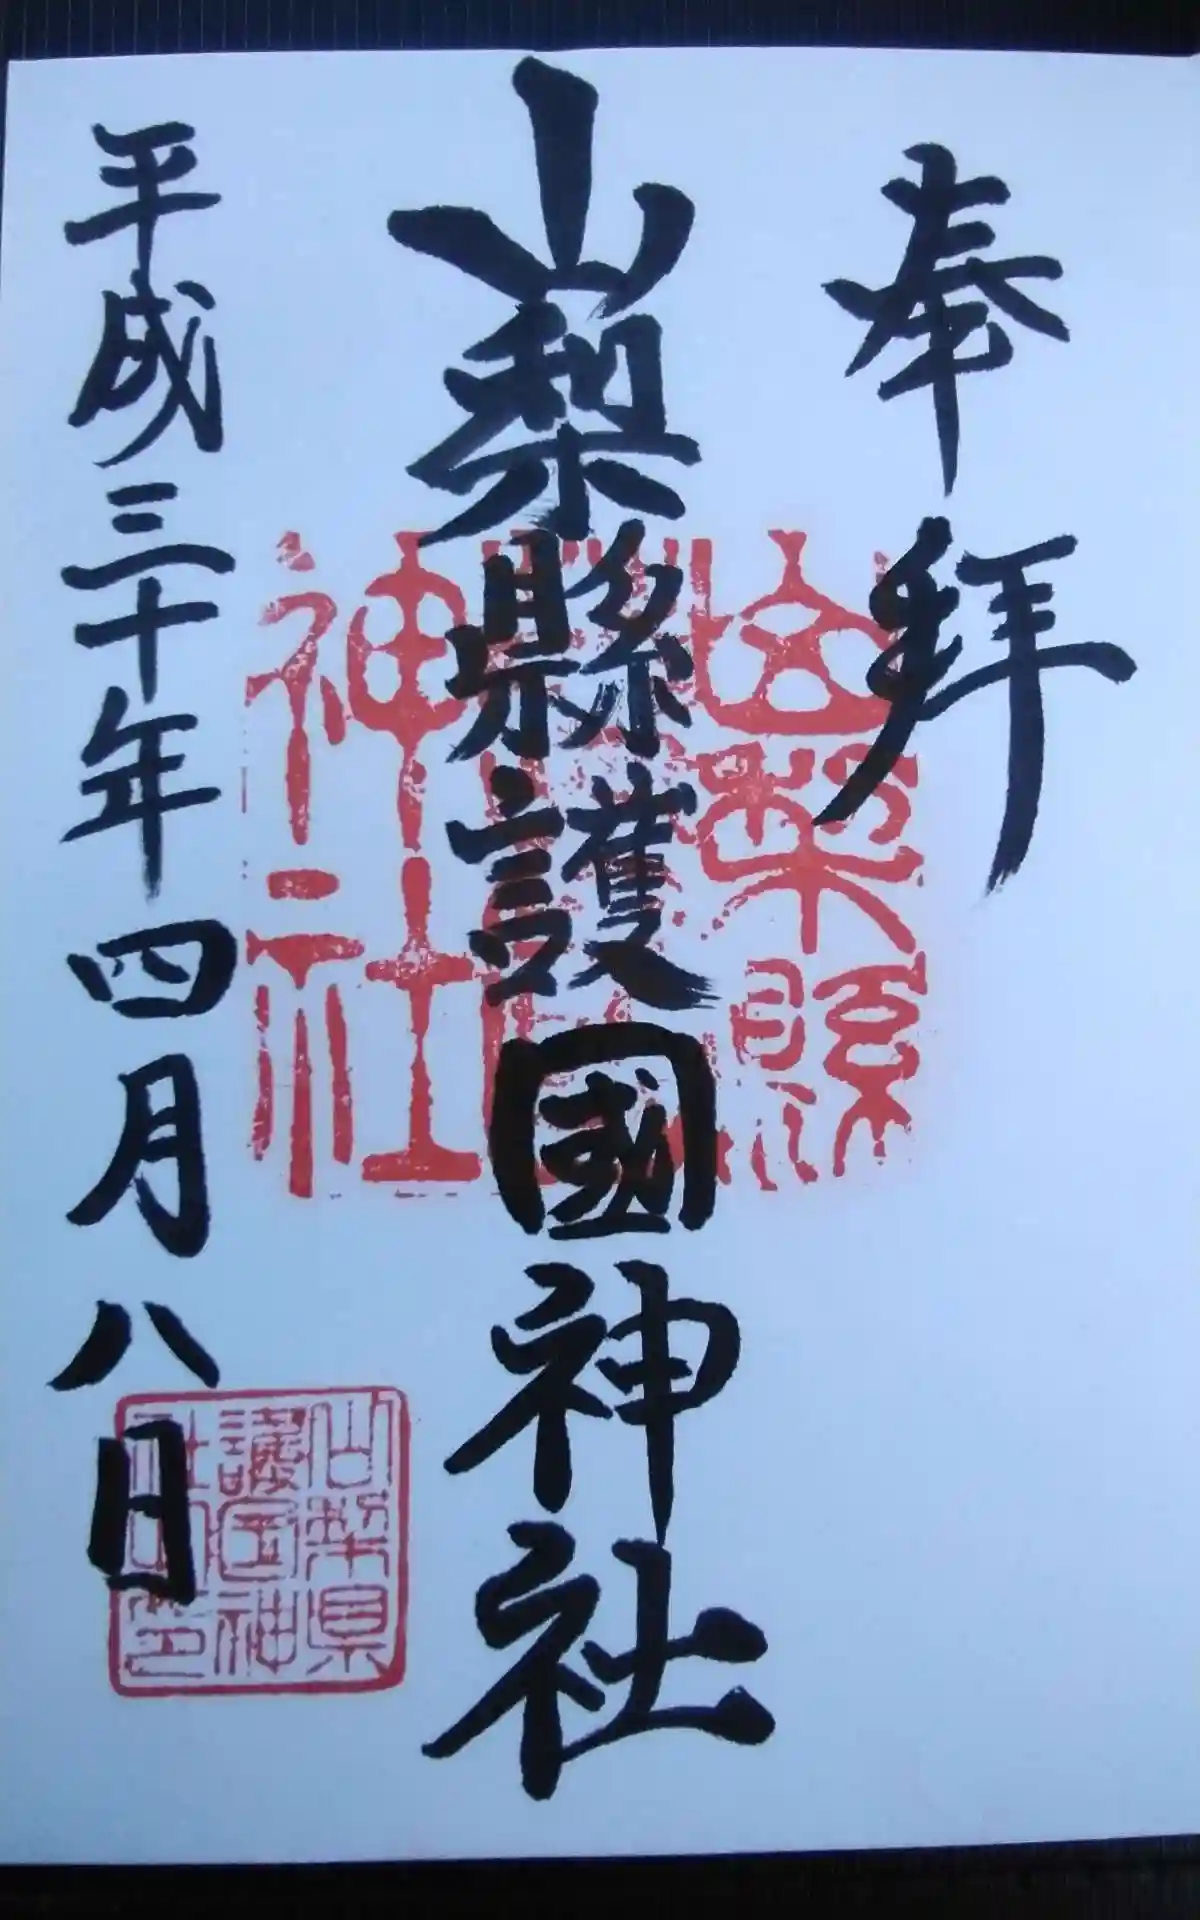 奉拜
山梨縣護國神社
平成三十年四月八日
山梨縣
神社
山梨県
護国神
社
印